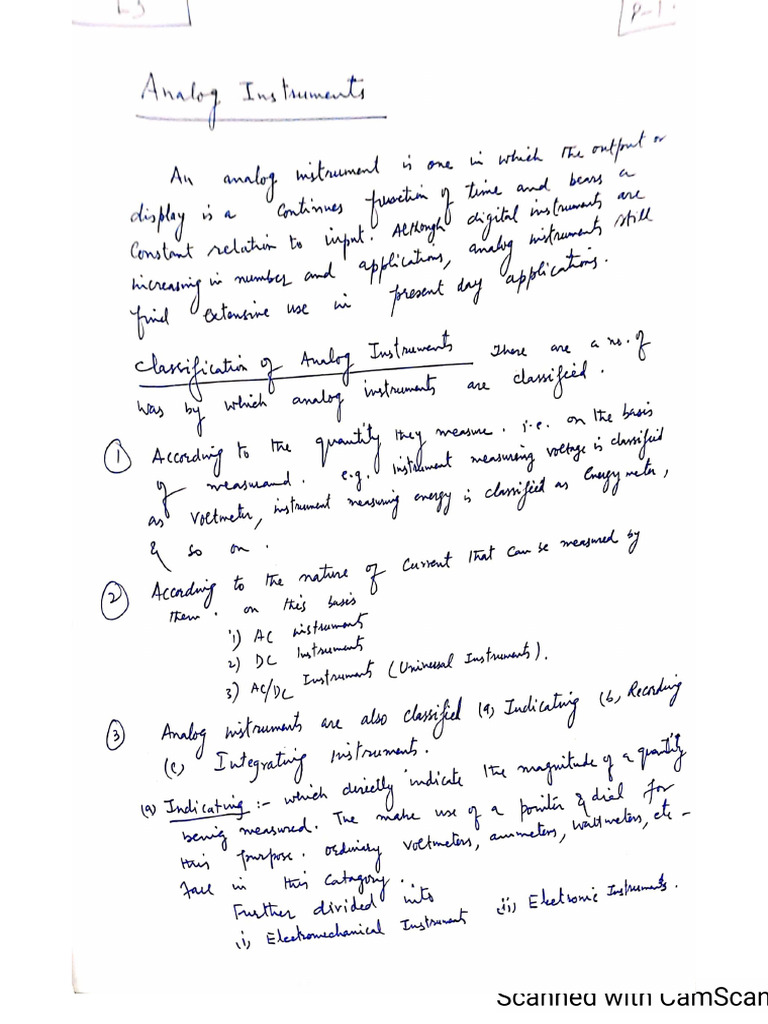 L-3
P-1.
Analog Instruments
An analog instrument is one in which the output or
display is a continues function of time and bears a
constant relation to input. Although digital instruments are
increasing in number and applications, analog instruments still
find extensive use in present day applications.
Classification of Analog Instruments There are a no. of
was by which analog instruments are classified.
① According to the quantity they measure. i.e. on the basis
of measurand. e.g. instrument measuring voltage is classified
as voltmeter, instrument measuring energy is classified as Energy meter,
& so on.
② According to the nature of current that can be measured by
them. on this basis
1) AC instrument
2) DC Instruments
3) AC/DC Instrument (Universal Instruments).
③ Analog instruments are also classified (a) Indicating (b) Recording
(c) Integrating instruments.
(a) Indicating :- which directly indicate the magnitude of a quantity
being measured. The make use of a pointer & dial for
this purpose. ordinary voltmeters, ammeters, wattmeters, etc -
face in this catagory.
Further divided into
(i) Electromechanical Instrument (ii) Electronic Instruments.
Scanned with CamScan